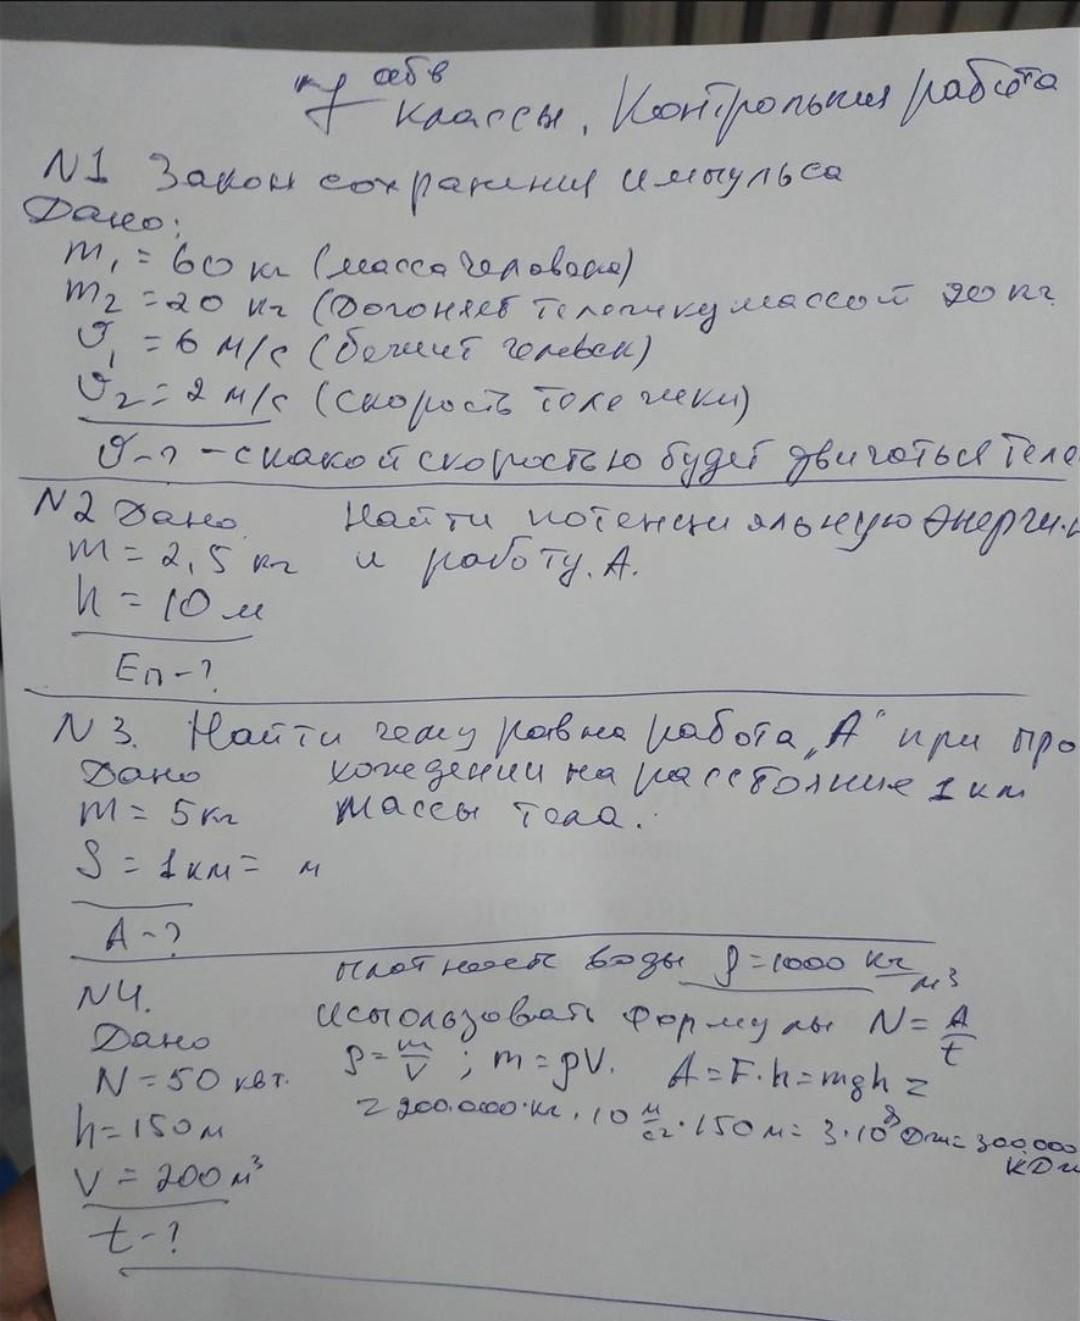 абв
7 классы. Контрольная работа
N1 Закон сохранения импульса
Дано:
m₁ = 60 кг (масса человека)
m₂ = 20 кг (Догоняет тележку массой 20 кг
υ₁ = 6 м/с (бежит человек)
υ₂ = 2 м/с (скорость тележки)
υ-? - с какой скоростью будет двигаться теле
N2 Дано Найти потенциальную энерги
m = 2,5 кг и работу. А.
h = 10 м
Eп-?
N3. Найти чему равна работа „А" при про
Дано хождении на расстояние 1 км
m = 5 кг массы тела.
S = 1 км = м
А-?
N4. плотность воды ρ=1000 кг/м³
Дано использовать формулы N = A/t
N = 50 квт. ρ = m/V ; m = ρV. A = F·h = mgh =
h = 150 м = 200.000·кг·10 м/с²·150 м = 3·10⁸ Дж = 300.000
кДж
V = 200 м³
t-?